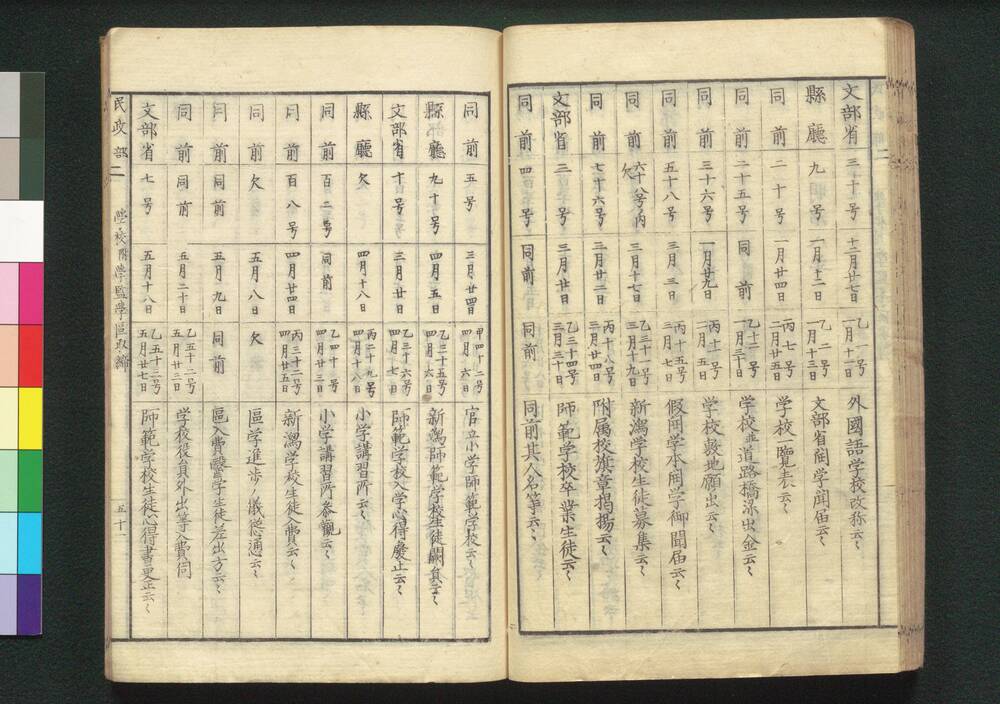 文部省 三十号 十二月廿七日 乙一号 一月十一日 外國語学校改称云〻
縣廳 九号 一月十二日 乙二号 一月十三日 文部省開学聞届云〻
同前 二十号 一月廿四日 丙七号 二月廿五日 学校一覧表云〻
同前 二十五号 同前 乙十二号 一月三十日 学校並道路橋梁出金云〻
同前 三十六号 一月廿九日 丙十一号 二月十五日 学校敷地願出云〻
同前 五十八号 三月三日 丙十五号 三月十日 假開学本開学御聞届云〻
同前 六十八号ノ内欠 三月十七日 乙三十一号 三月十九日 新潟学校生徒募集云〻
同前 七十六号 三月廿二日 丙十八号 三月廿四日 附属校旗章掲揚云〻
文部省 二号 三月廿日 乙三十四号 三月三十日 師範学校卒業生徒云〻
同前 四号 同前 同前 同前其人名等云〻
同前 五号 三月廿四日 甲四十二号 四月六日 官立小学師範学校云〻
縣廳 九十号 四月五日 乙三十五号 四月六日 新潟師範学校生徒闕員云〻
文部省 十号 三月廿日 乙三十六号 四月七日 師範学校入学心得廢止云〻
縣廳 欠 四月十八日 丙二十九号 四月十八日 小学講習所云〻
同前 百二号 同前 乙四十号 四月廿三日 小学講習所参観云〻
同前 百八号 四月廿四日 丙三十二号 四月廿五日 新潟学校生徒入費云〻
同前 欠 五月八日 欠 區学進歩ノ儀徳通云〻
同前 同前 五月九日 同前 區入費醫学生徒差出方云〻
同前 同前 五月二十日 乙五十一号 五月廿二日 学校役員外出等入費伺
文部省 七号 五月十八日 乙五十二号 五月廿七日 師範学校生徒心得書更正云〻
民政部二 学校附学監学區取締 五十一